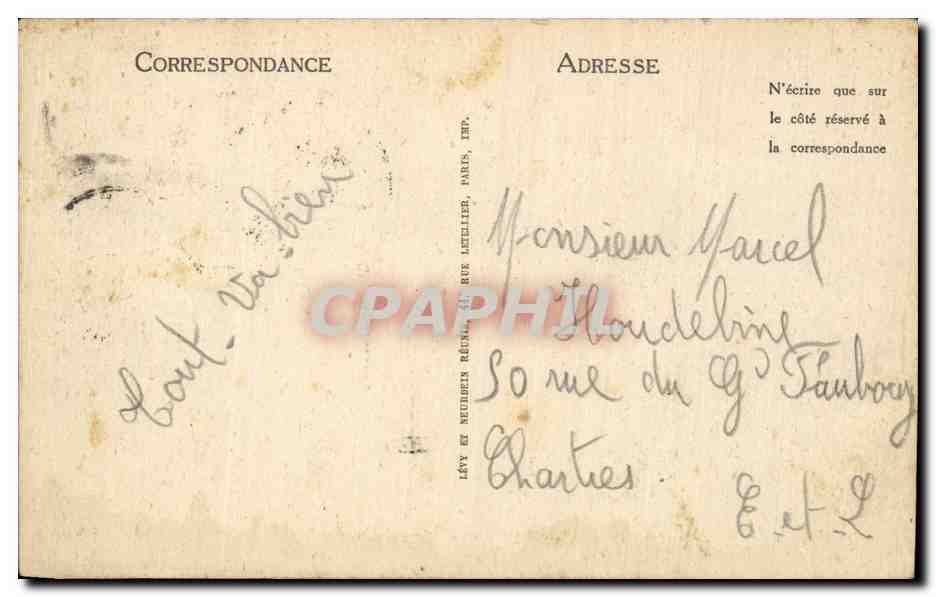 CORRESPONDANCE
ADRESSE
N'écrire que sur
le côté réservé à
la correspondance
Tout - Va - bien
LÉVY ET NEURDEIN RÉUNIS, 44, RUE LETELLIER, PARIS, IMP.
CPAPHIL
Monsieur Marcel
Houdebine
50 rue du Gd Faubourg
Chartres.
E.-et-L